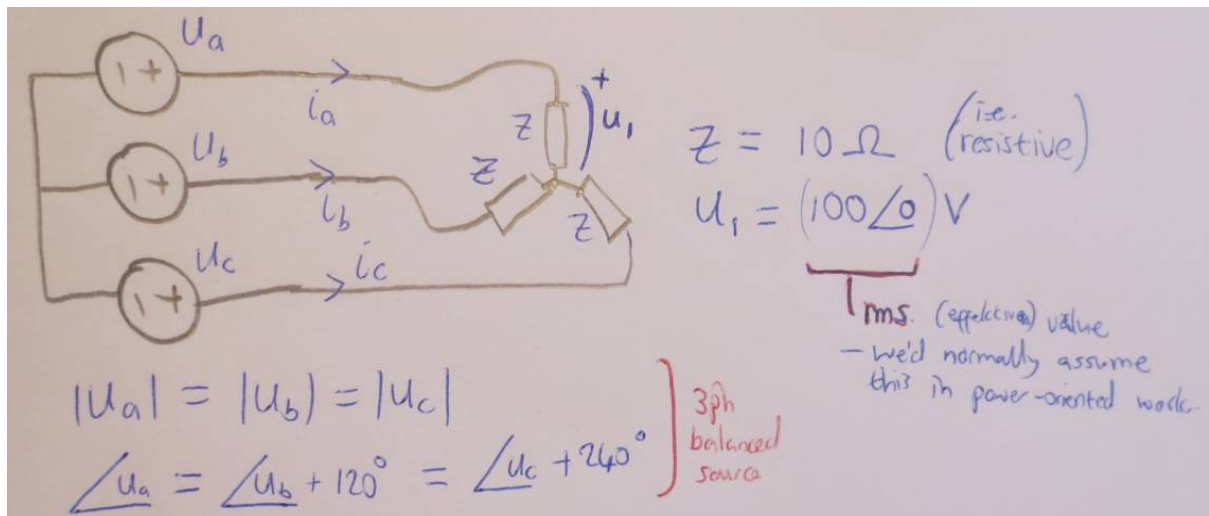 Ua
ia
Ub
ib
Uc
ic
Z
Z
Z
+
u₁
Z = 10 Ω (i.e. resistive)
U₁ = (100∠0) V
rms. (effektiva) value
– we'd normally assume
this in power-oriented work.
|Ua| = |Ub| = |Uc|
∠Ua = ∠Ub + 120° = ∠Uc + 240°
3ph
balanced
source